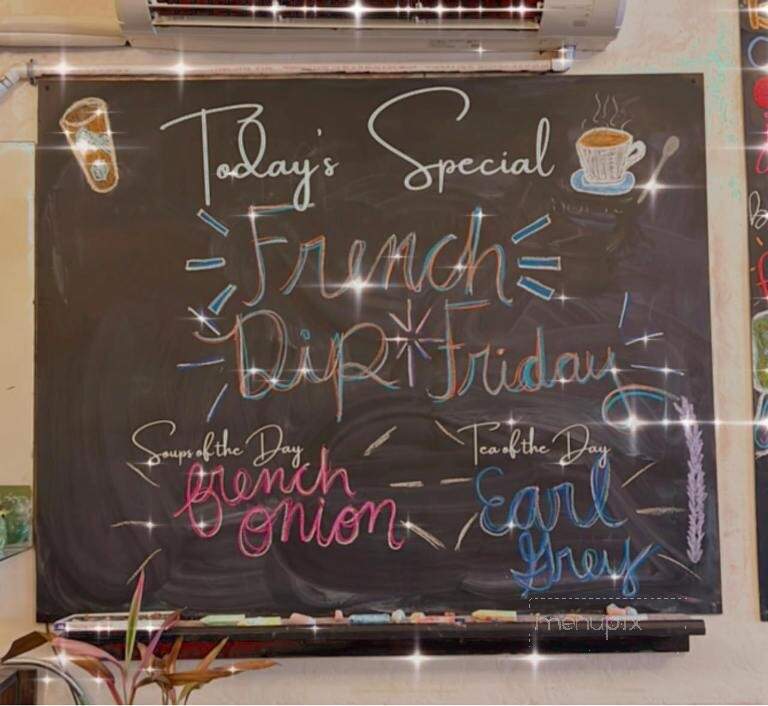 Today's Special
French
Dip Friday
Soups of the Day
french
onion
Tea of the Day
Earl
Grey
menupix